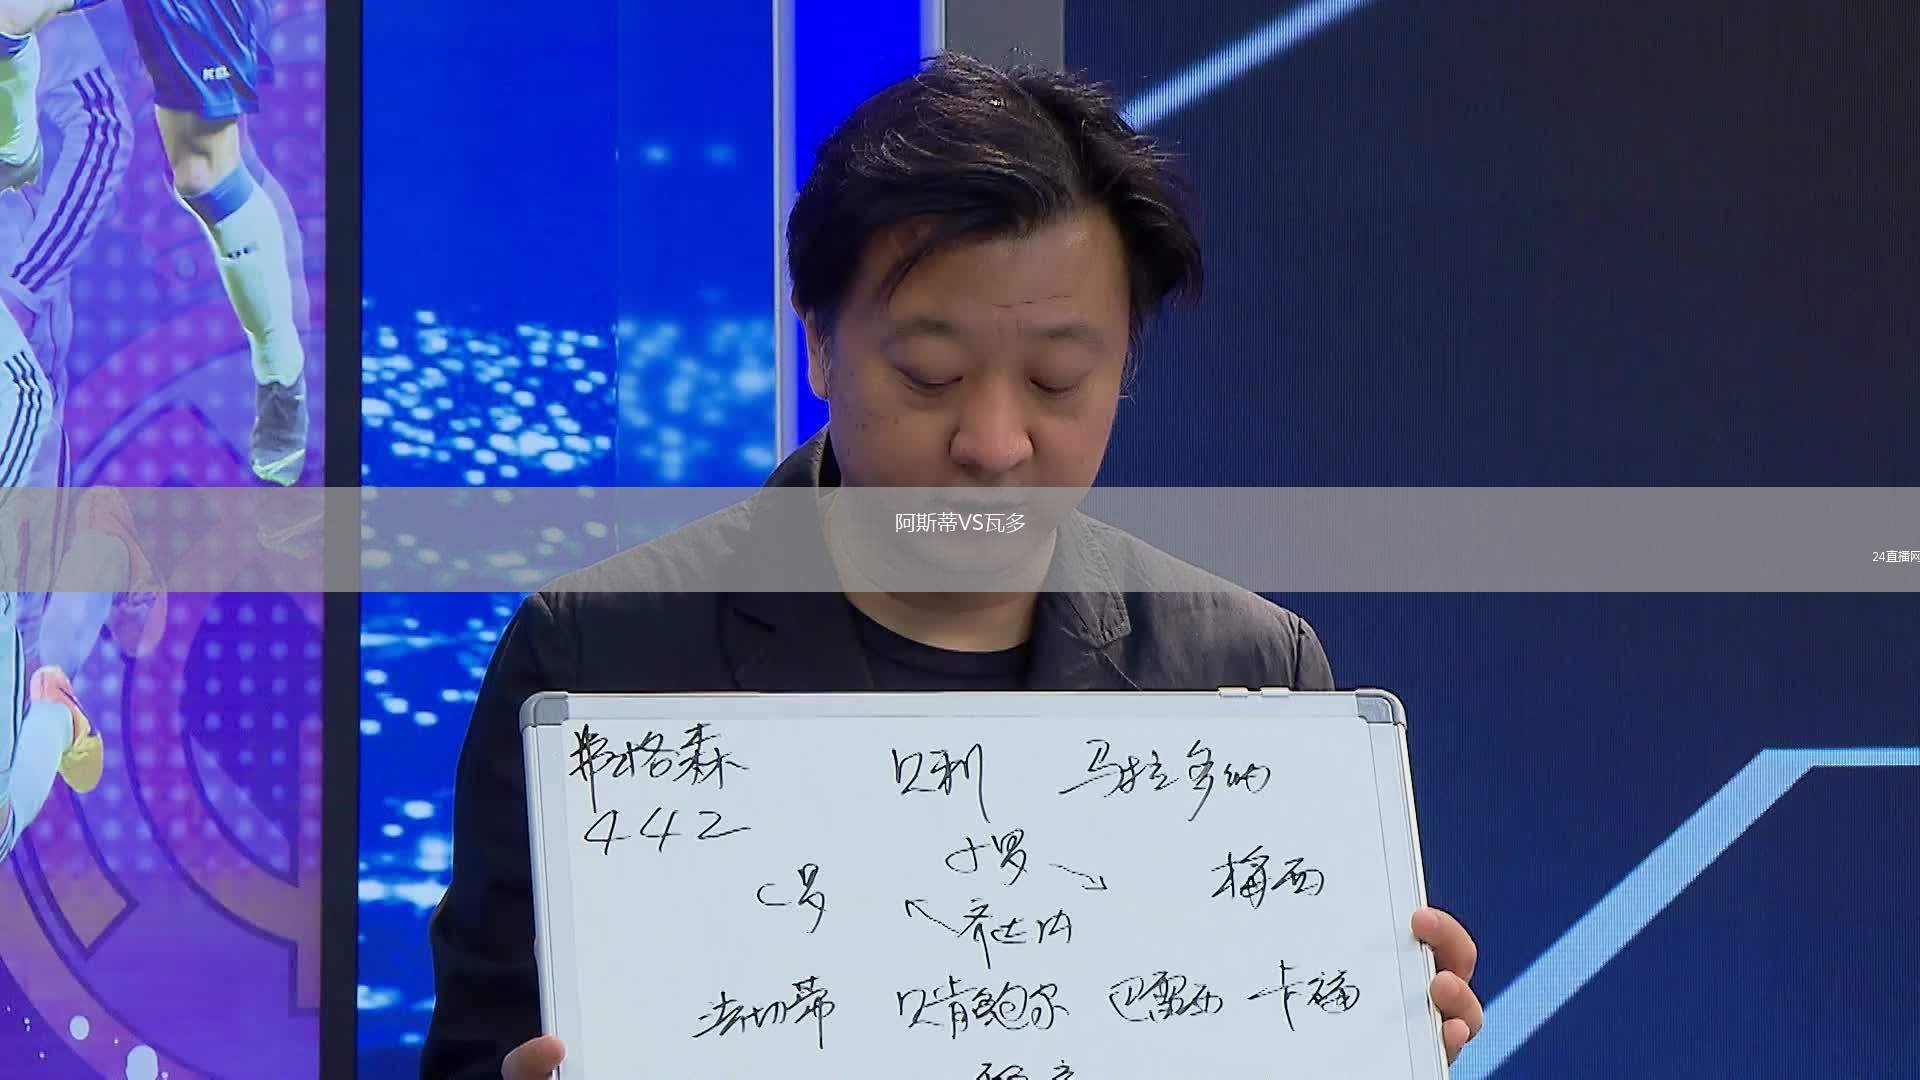 阿斯蒂VS瓦多
24直播网
弗格森 贝利 马拉多纳
442
小罗
C罗 梅西
齐达内
法切蒂 贝肯鲍尔 巴雷西 卡福